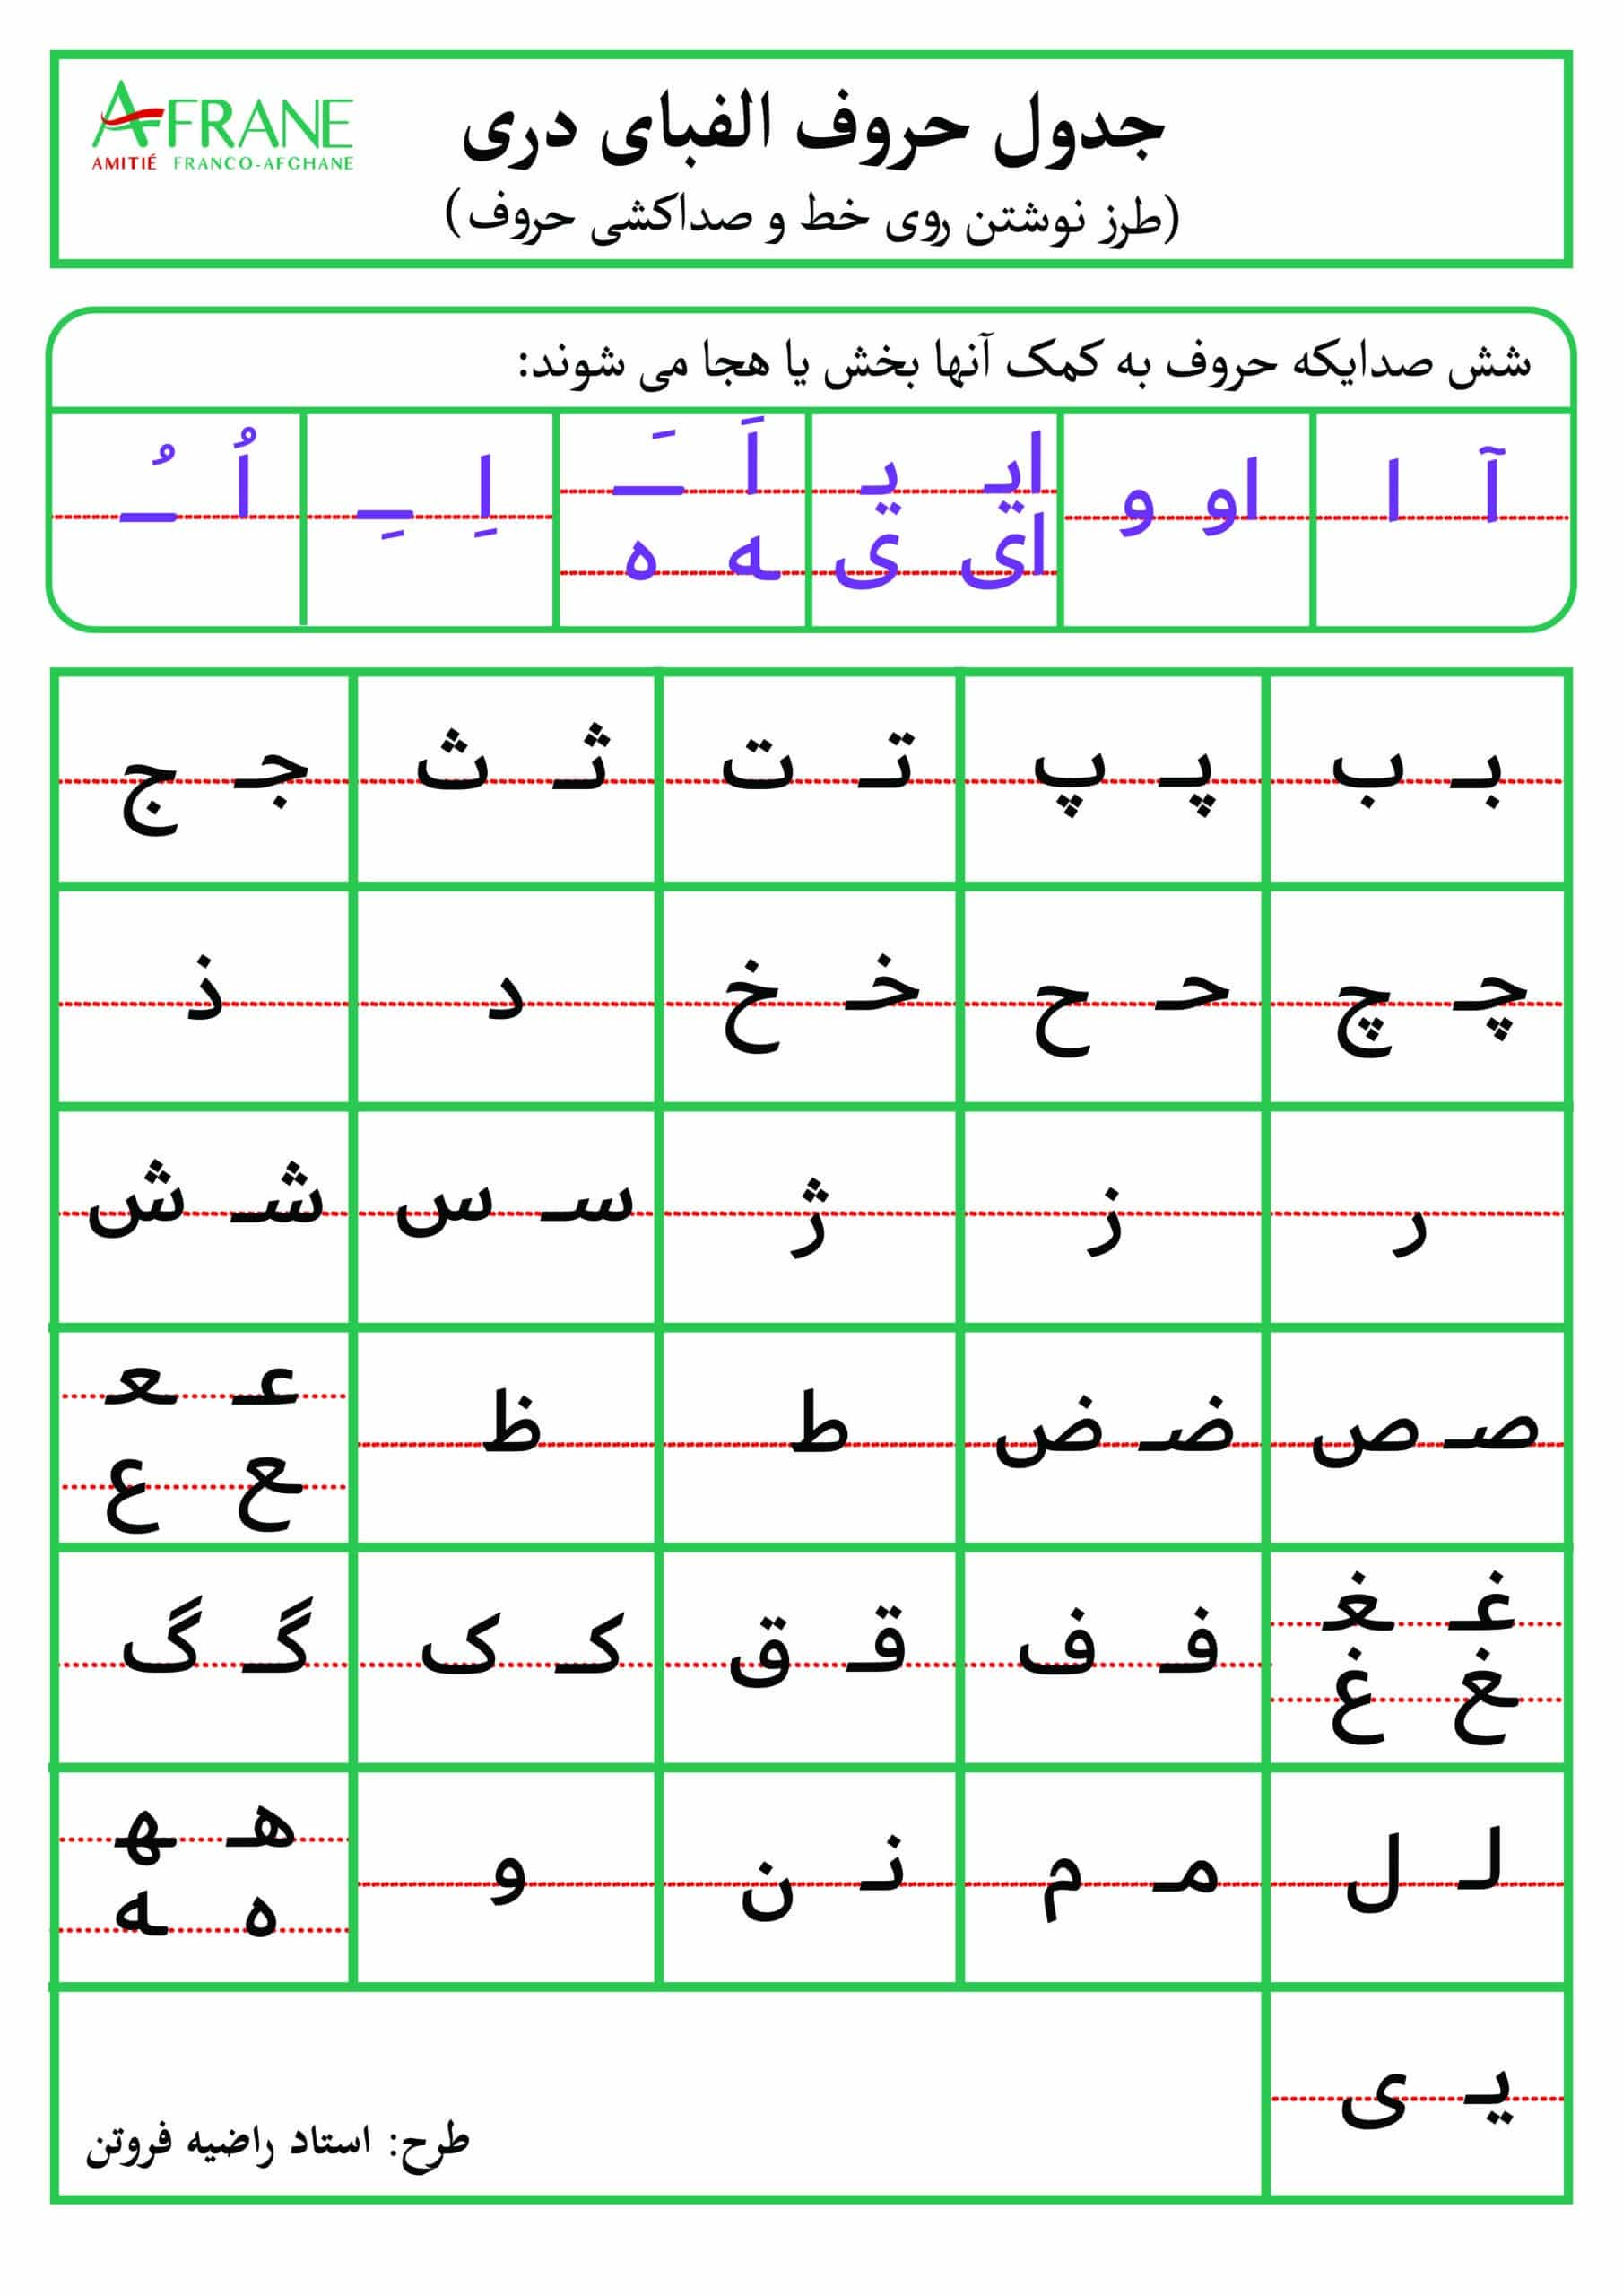 AFRANE
AMITIÉ FRANCO-AFGHANE
جدول حروف الفبای دری
(طرز نوشتن روی خط و صداکشی حروف)
شش صدایکه حروف به کمک آنها بخش یا هجا می شوند:
آ ا
او و
ایـ یـ
ای ی
اَ ـَ
ـه ه
اِ ـِ
اُ ـُ
بـ ب
پـ پ
تـ ت
ثـ ث
جـ ج
چـ چ
حـ ح
خـ خ
د
ذ
ر
ز
ژ
سـ س
شـ ش
صـ ص
ضـ ض
ط
ظ
عـ ـعـ
ـع ع
غـ ـغـ
ـغ غ
فـ ف
قـ ق
کـ ک
گـ گ
لـ ل
مـ م
نـ ن
و
هـ ـهـ
ه ـه
یـ ی
طرح: استاد راضیه فروتن